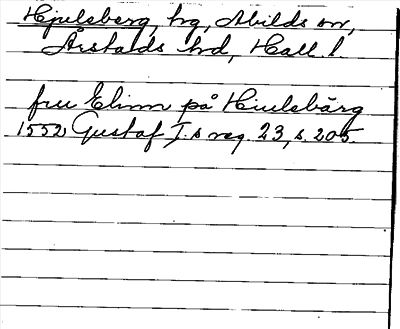 Hjulsberg, hg, Abilds sn,
Årstads hd, Hall. l.
fru Elinn på Hiulsbärg
1552 Gustaf I.s reg. 23, s. 205.